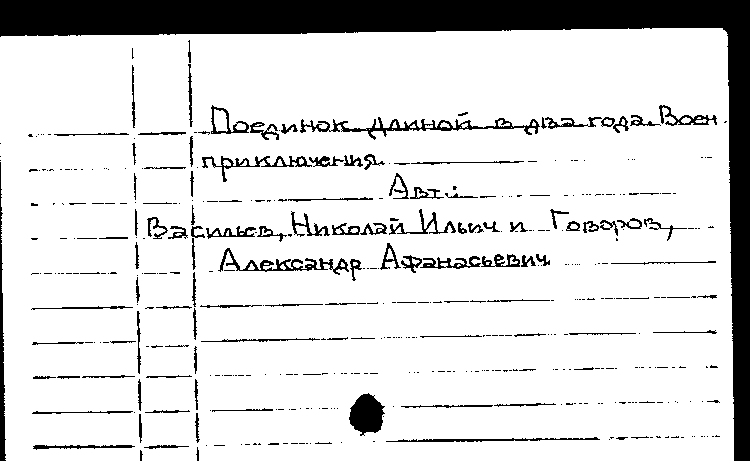 Поединок длиной в два года. Воен.
приключения.
Авт.:
Васильев, Николай Ильич и Говоров,
Александр Афанасьевич